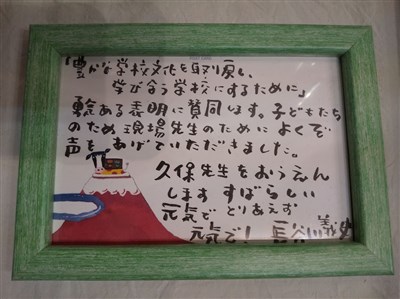 「豊かな学校文化を取り戻し、
学び合う学校にするために」
勇気ある表明に賛同します。子どもたち
のため現場先生のためによくぞ
声をあげていただきました。
久保先生をおうえん
します すばらしい
元気で とりあえず
元気で! 長谷川義史